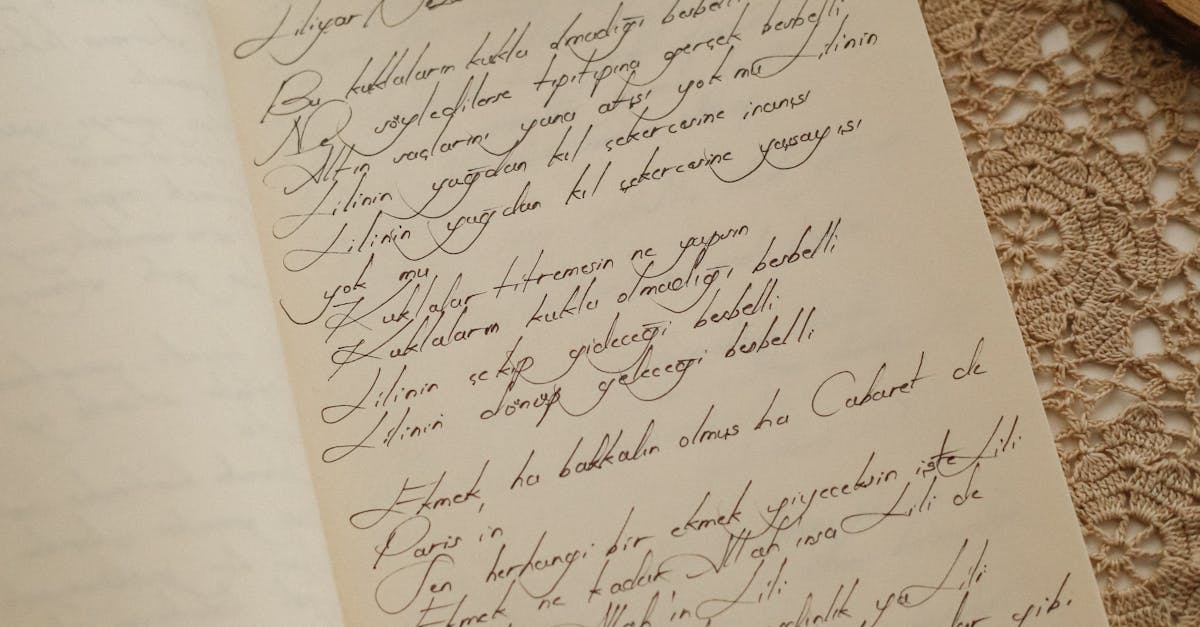 Liliyar
Bu kuklaların kukla olmadığı besbelli
Ne söyledilerse tıpıtıpına gerçek besbelli
Altın saçlarını yana atışı yok mu Lilinin
Lilinin yağdan kıl şekercesine inanışı
Lilinin yağdan kıl şekercesine yaşayışı
yok mu
Kuklalar titremesin ne yapsın
Kuklaların kukla olmadığı besbelli
Lilinin çekip gideceği besbelli
Lilinin dönüp geleceği besbelli
Ekmek, ha bakkalın olmuş ha Cabaret de
Paris in
Sen herhangi bir ekmek yiyeceksin işte Lili
Ekmek ne kadar Allah ınsa Lili de
Allah'ın Lili
ya Lili
gib.